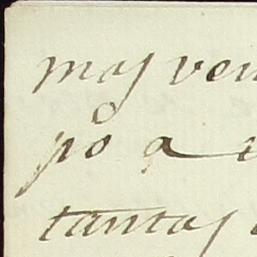 mas ven
po a e
tantas